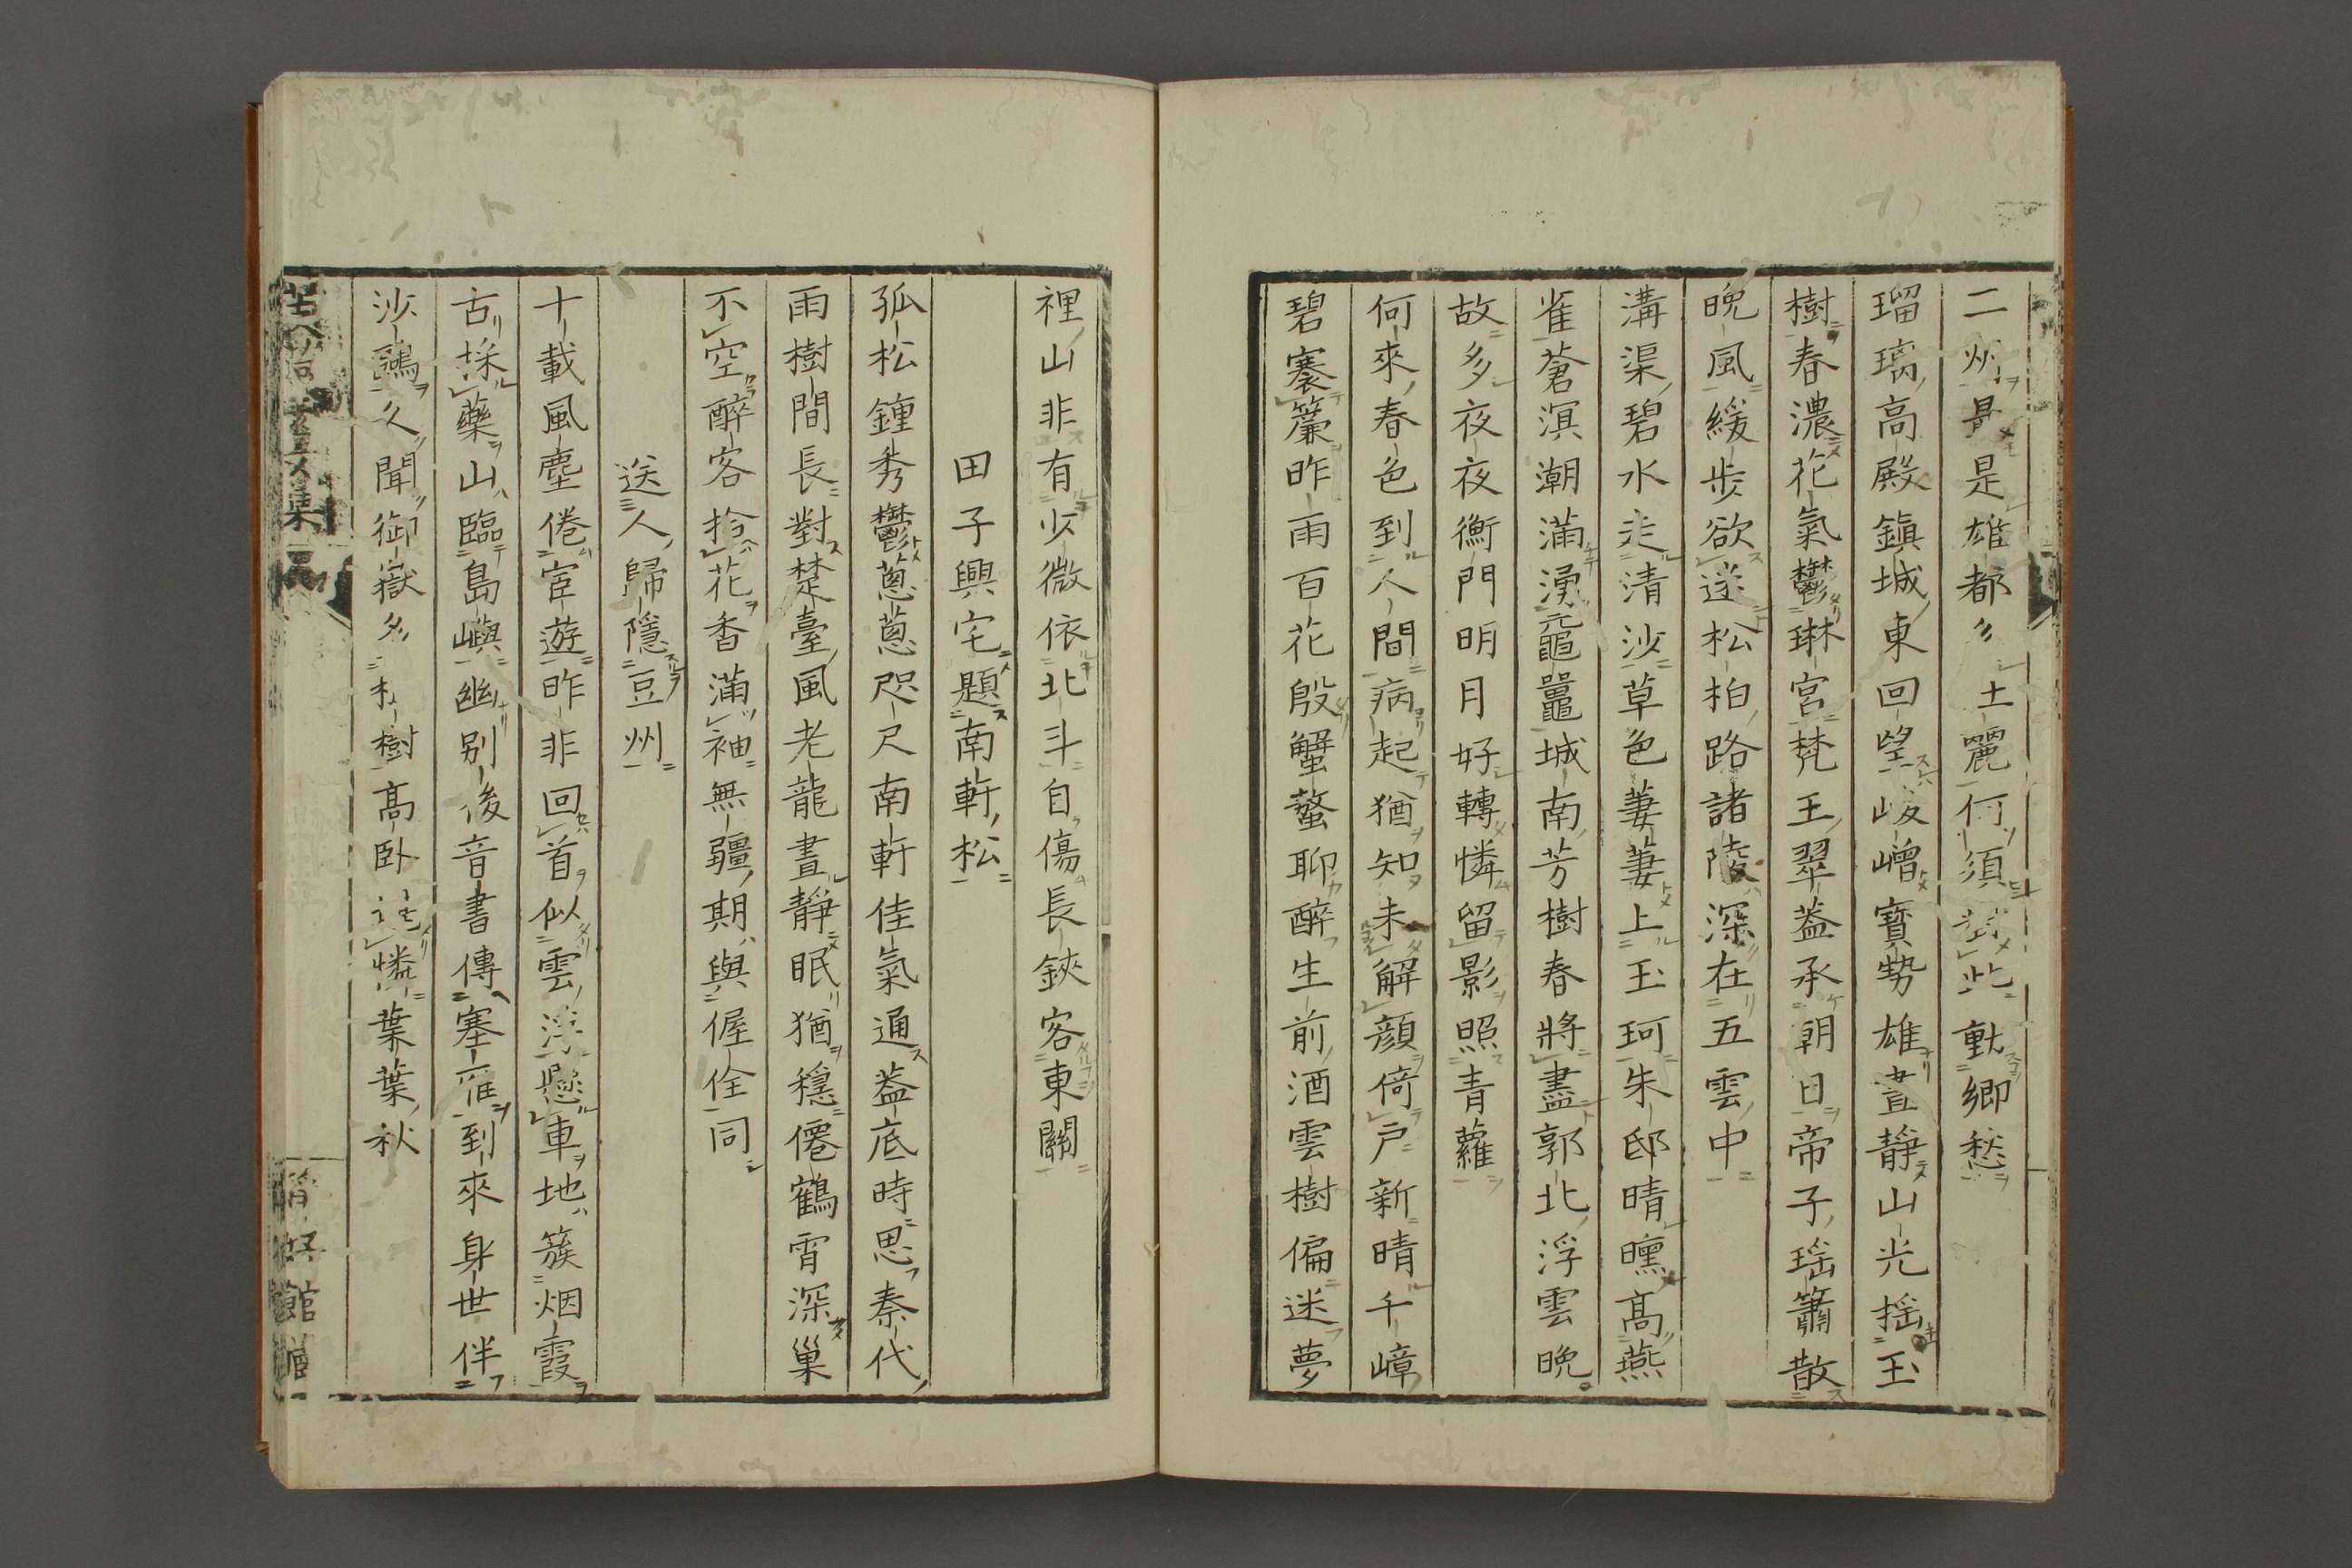 二州是雄都土麗何須對此動鄉愁
瑠璃高殿鎮城東回望崚嶒寶勢雄晝靜山光揺玉
樹春濃花氣鬱琳宮梵王翠葢承朝日帝子瑶簫散
晩風緩歩欲迷松柏路諸陵深在五雲中
溝渠碧水走清沙草色萋萋上玉珂朱邸晴曛高燕
雀蒼溟潮滿湧黿鼉城南芳樹春將盡郭北浮雲晩
故多夜夜衡門明月好轉憐留影照青蘿
何來春色到人間病起猶知未解顔倚戸新晴千嶂
碧褰簾昨雨百花殷蟹螯聊醉生前酒雲樹偏迷夢
裡山非有少微依北斗自傷長鋏客東關
田子興宅題南軒松
孤松鍾秀鬱蔥蔥咫尺南軒佳氣通葢底時思秦代
雨樹間長對楚臺風老龍晝靜眠猶穩僊鶴宵深巢
不空醉客拾花香滿袖無疆期與偓佺同
送人歸隱豆州
十載風塵倦宦遊昨非回首似雲浮懸車地簇烟霞
古採藥山臨島嶼幽別後音書傳塞雁到來身世伴
沙鷗久聞御嶽多樹高臥憐葉葉秋